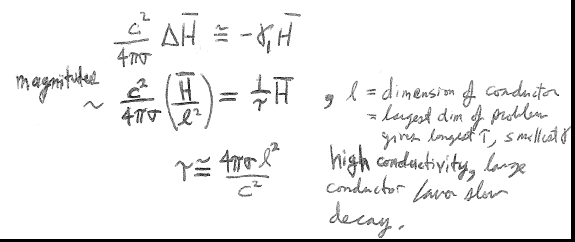 c²/4πσ ΔH̅ ≅ -γ₁H̅
magnitudes ~ c²/4πσ (H̅/l²) = 1/τ H̅ , l = dimension of conductor
= largest dim of problem
gives longest τ, smallest γ
τ ≅ 4πσl²/c²
high conductivity, large
conductor favor slow
decay.